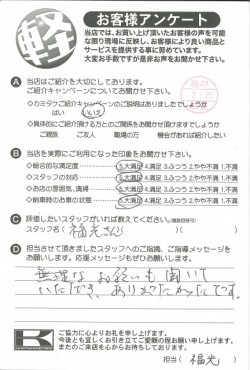 軽
お客様アンケート
当店では、お買い上げ頂いたお客様の声を可能
な限り現場に反映し、お客様により良い商品と
サービスを提供する事に努めています。
大変お手数ですが是非お声をお聞かせ下さい。
A 当店はご紹介を大切にしてあります。
ご紹介キャンペーンについてお聞かせ下さい。
・カミタケご紹介キャンペーンのご説明はありましたでしょうか
はい いいえ
◇具体的にご紹介頂ける方とのご関係をお聞かせ頂けますでしょうか
ご親族 ご友人 職場の方 機会があれば紹介したい
B 当店を実際にご利用になった印象をお聞かせ下さい。
◇総合的な満足度 5.大満足 4.満足 3.ふつう 2.やや不満 1.不満
◇スタッフの対応 5.大満足 4.満足 3.ふつう 2.やや不満 1.不満
◇お店の雰囲気、清掃 5.大満足 4.満足 3.ふつう 2.やや不満 1.不満
◇納車時のお車の状態 5.大満足 4.満足 3.ふつう 2.やや不満 1.不満
C 評価したいスタッフがいれば教えてください。(複数回答可)
スタッフ名( 福光さん )( )
D 担当させて頂きましたスタッフへのご指摘、ご指導メッセージを
お願いします。応援メッセージもぜひお願いします。
無理なお願いも聞いて
いただき、ありがたかったです。
K
ご協力に心よりお礼を申し上げます。
今後とも宜しくお引き立てご愛顧の程お願い申し上げます。
またのご来店を心からお待ちしております。
担当( 福光 )